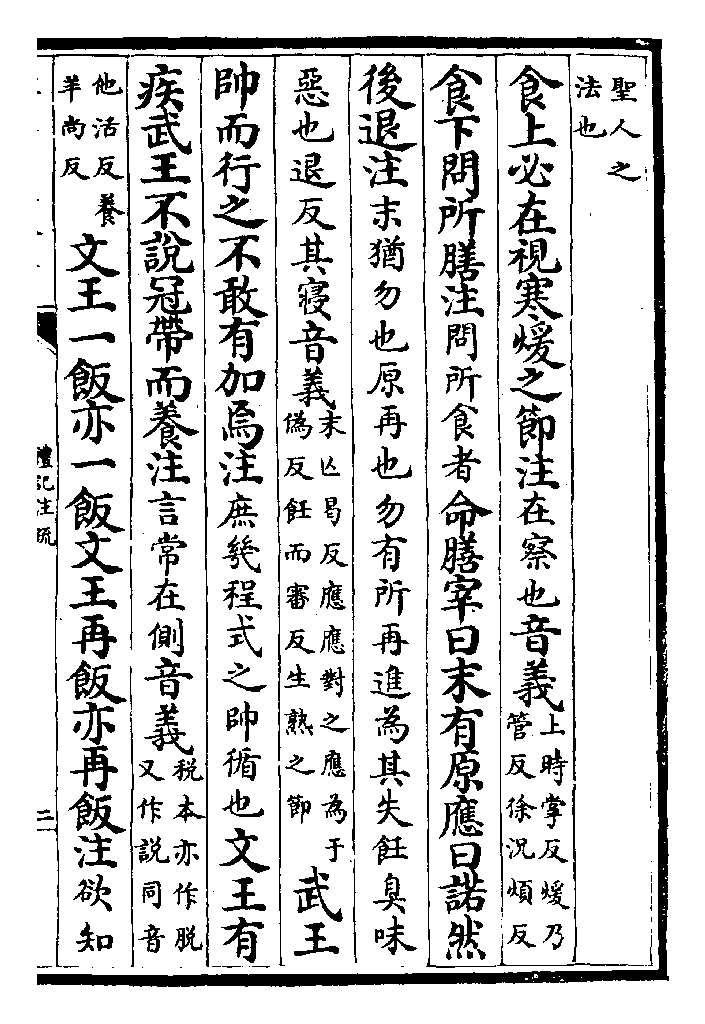 聖人之
法也
食上必在視寒煖之節注在察也音義上時掌反煖乃
管反徐況煩反
食下問所膳注問所食者命膳宰曰末有原應曰諾然
後退注末猶勿也原再也勿有所再進為其失飪臭味
惡也退反其寢音義末亾曷反應應對之應為于
偽反飪而審反生熟之節武王
帥而行之不敢有加焉注庶幾程式之帥循也文王有
疾武王不說冠帶而養注言常在側音義税本亦作脱
又作説同音
他活反養
羊尚反文王一飯亦一飯文王再飯亦再飯注欲知
禮記注疏
二